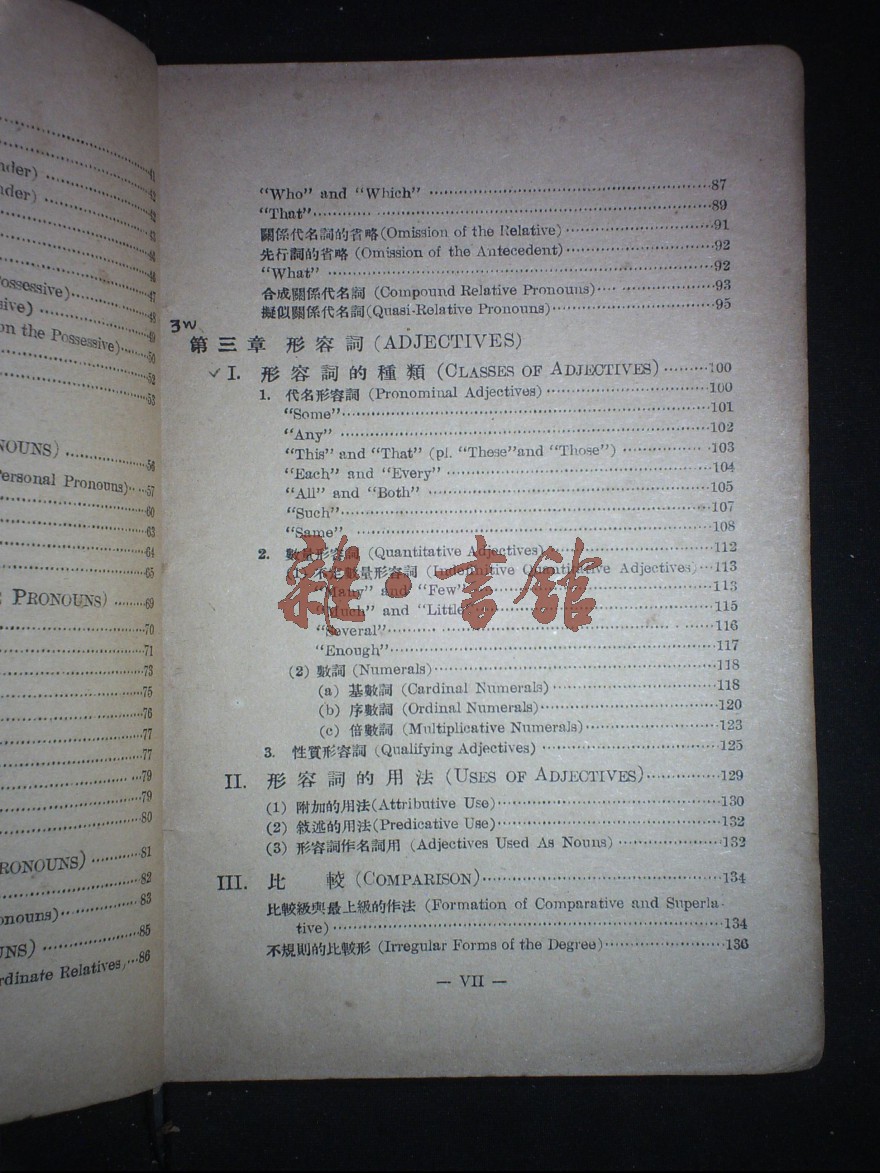 41
nder) 42
nder) 42
43
44
46
46
ossessive) 47
sive) 48
49
on the Possessive) 50
52
53
NOUNS) 56
Personal Pronouns) 57
60
63
64
65
PRONOUNS) 69
70
71
73
75
76
77
77
79
79
80
PRONOUNS) 81
82
onouns) 83
UNS) 85
rdinate Relatives, 86
"Who" and "Which" 87
"That" 89
關係代名詞的省略(Omission of the Relative) 91
先行詞的省略 (Omission of the Antecedent) 92
"What" 92
合成關係代名詞 (Compound Relative Pronouns) 93
擬似關係代名詞(Quasi-Relative Pronouns) 95
3W
第三章 形容詞 (ADJECTIVES)
✓ I. 形容詞的種類 (CLASSES OF ADJECTIVES) 100
1. 代名形容詞 (Pronominal Adjectives) 100
"Some" 101
"Any" 102
"This" and "That" (pl. "These"and "Those") 103
"Each" and "Every" 104
"All" and "Both" 105
"Such" 107
"Same" 108
2. 數量形容詞 (Quantitative Adjectives) 112
(1) 不定數量形容詞 (Indefinitive Quantitative Adjectives) 113
"Many" and "Few" 113
"Much" and "Little" 115
"Several" 116
"Enough" 117
(2) 數詞 (Numerals) 118
(a) 基數詞 (Cardinal Numerals) 118
(b) 序數詞 (Ordinal Numerals) 120
(c) 倍數詞 (Multiplicative Numerals) 123
3. 性質形容詞 (Qualifying Adjectives) 125
II. 形容詞的用法 (USES OF ADJECTIVES) 129
(1) 附加的用法(Attributive Use) 130
(2) 敘述的用法(Predicative Use) 132
(3) 形容詞作名詞用 (Adjectives Used As Nouns) 132
III. 比 較 (COMPARISON) 134
比較級與最上級的作法 (Formation of Comparative and Superla-
tive) 134
不規則的比較形 (Irregular Forms of the Degree) 136
— VII —
雜·書館